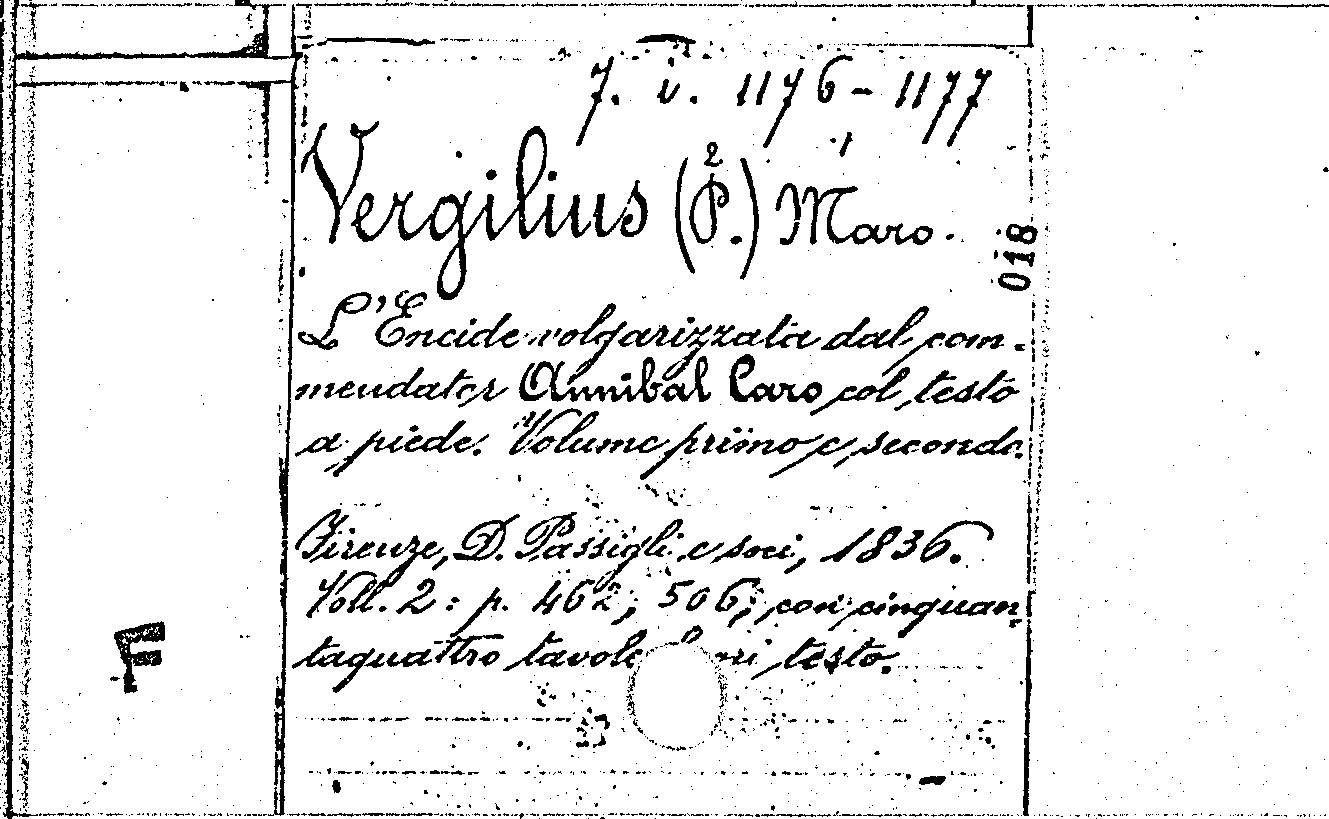 7. i. 1176 - 1177
2
Vergilius (P.) Maro.
018
L'Eneide volgarizzata dal com-
mendator Annibal Caro col testo
a piede. Volume primo e secondo.
Firenze, D. Passigli e soci, 1836.
Voll. 2 : p. 462, 506; con cinquan-
taquattro tavole fuori testo.
F